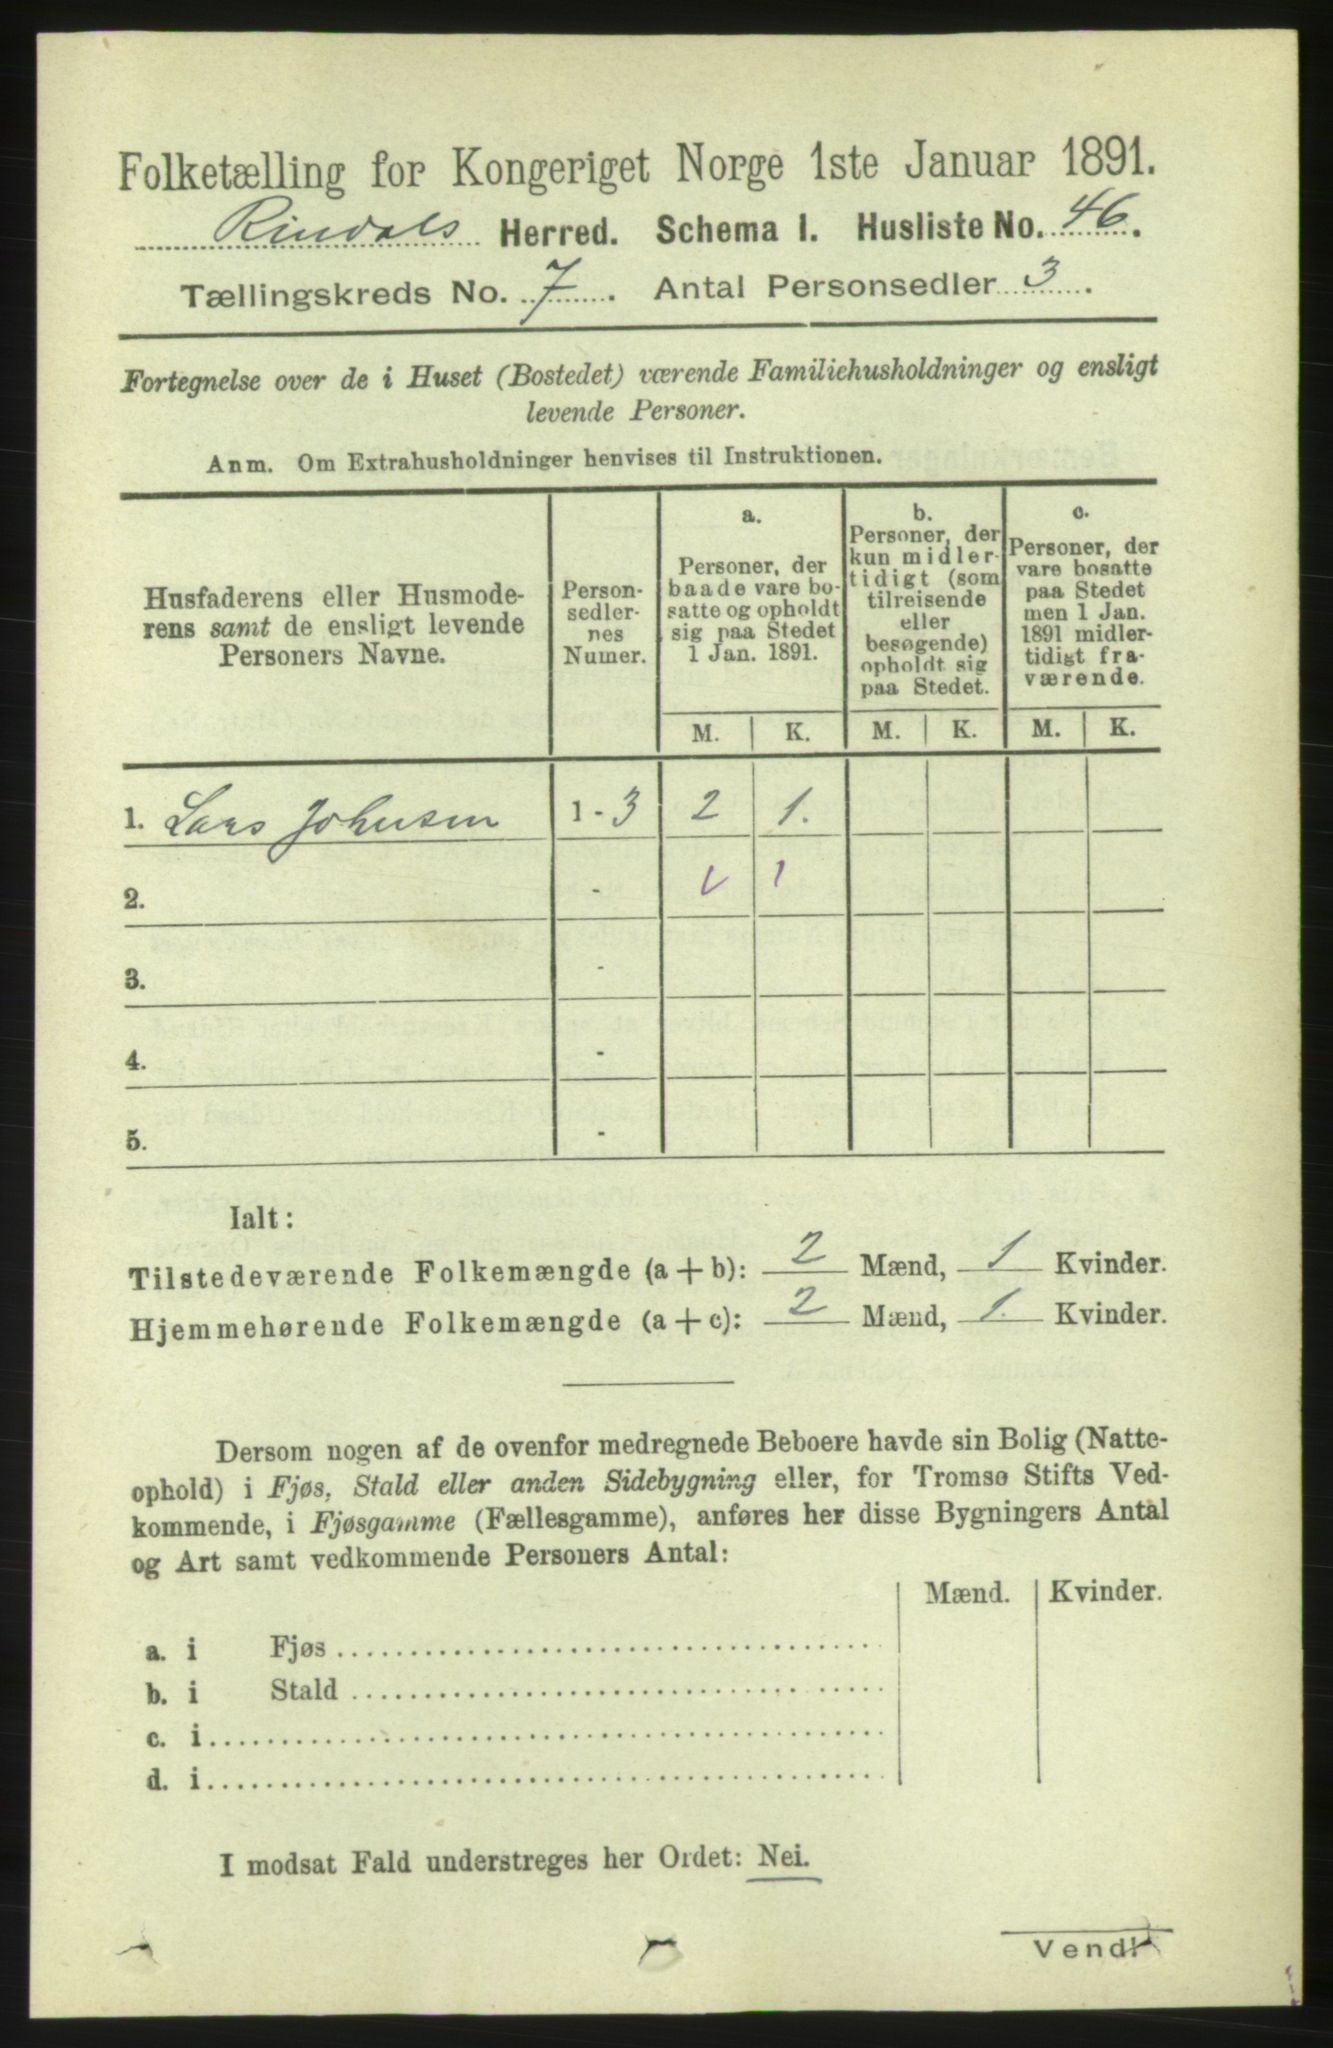 Folketælling for Kongeriget Norge 1ste Januar 1891.
Rindals Herred. Schema I. Husliste No. 46.
Tællingskreds No. 7. Antal Personsedler 3.
Fortegnelse over de i Huset (Bostedet) værende Familiehusholdninger og ensligt
levende Personer.
Anm. Om Extrahusholdninger henvises til Instruktionen.
Husfaderens eller Husmode-
rens samt de ensligt levende
Personers Navne.
Person-
sedler-
nes
Numer.
a.
Personer, der
baade vare bo-
satte og opholdt
sig paa Stedet
1 Jan. 1891.
b.
Personer, der
kun midler-
tidigt (som
tilreisende
eller
besøgende)
opholdt sig
paa Stedet.
c.
Personer, der
vare bosatte
paa Stedet
men 1 Jan.
1891 midler-
tidigt fra-
værende.
M. K. M. K. M. K.
1. Lars Johnsen 1 - 3 2 1.
2. - 1
3. -
4. -
5. -
Ialt:
Tilstedeværende Folkemængde (a + b): 2 Mænd, 1 Kvinder.
Hjemmehørende Folkemængde (a + c): 2 Mænd, 1. Kvinder.
Dersom nogen af de ovenfor medregnede Beboere havde sin Bolig (Natte-
ophold) i Fjøs, Stald eller anden Sidebygning eller, for Tromsø Stifts Ved-
kommende, i Fjøsgamme (Fællesgamme), anføres her disse Bygningers Antal
og Art samt vedkommende Personers Antal:
Mænd. Kvinder.
a. i Fjøs
b. i Stald
c. i
d. i
I modsat Fald understreges her Ordet: Nei.
Vend!